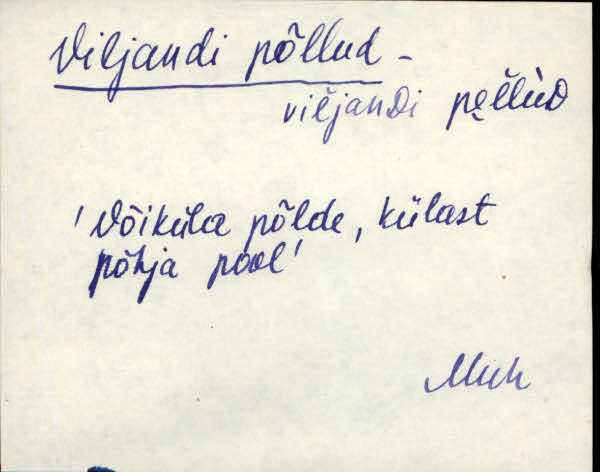 Viljandi põllud -
viľjandi pe̮l̆lùD
'Võiküla põlde, külast
põhja pool'
Muh